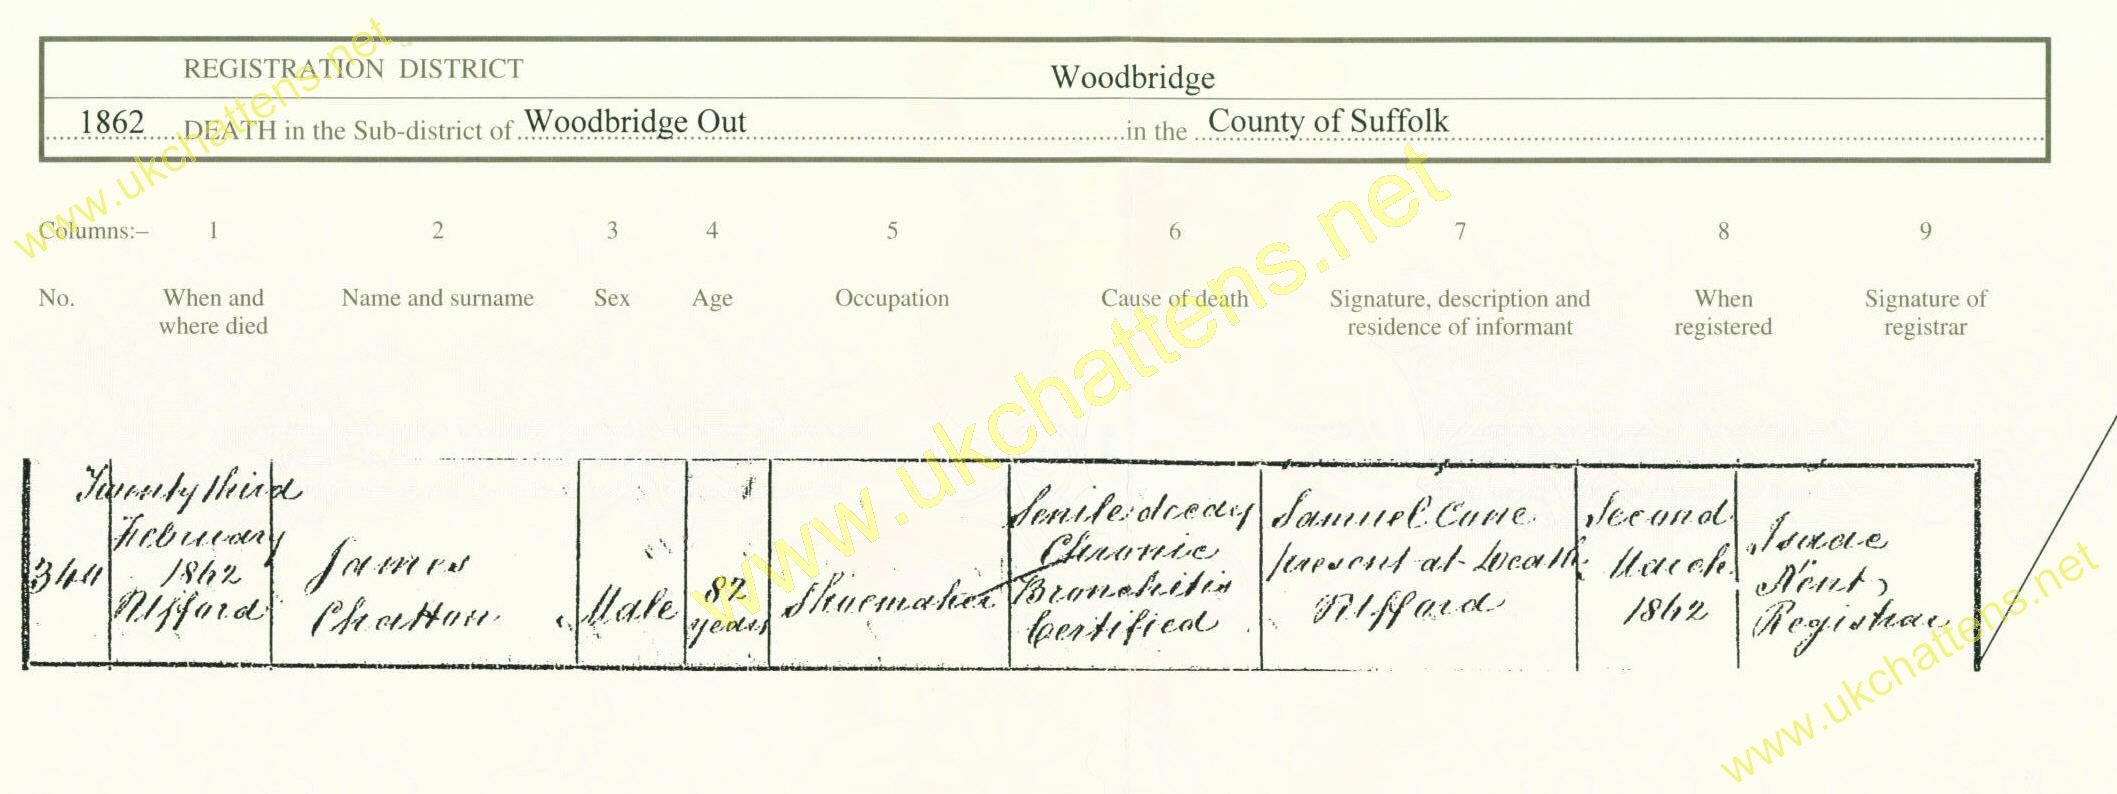 REGISTRATION DISTRICT Woodbridge
1862 DEATH in the Sub-district of Woodbridge Out in the County of Suffolk
Columns:– 1 2 3 4 5 6 7 8 9
No. When and where died Name and surname Sex Age Occupation Cause of death Signature, description and residence of informant When registered Signature of registrar
Twenty third
February
1862
Ufford
James
Chatten
Male
82
years
Shoemaker
Senile decay
Chronic
Bronchitis
Certified
Samuel
present at death
Ufford
Second
March
1862
Isaac
Registrar
www.ukchattens.net
www.ukchattens.net
www.ukchattens.net